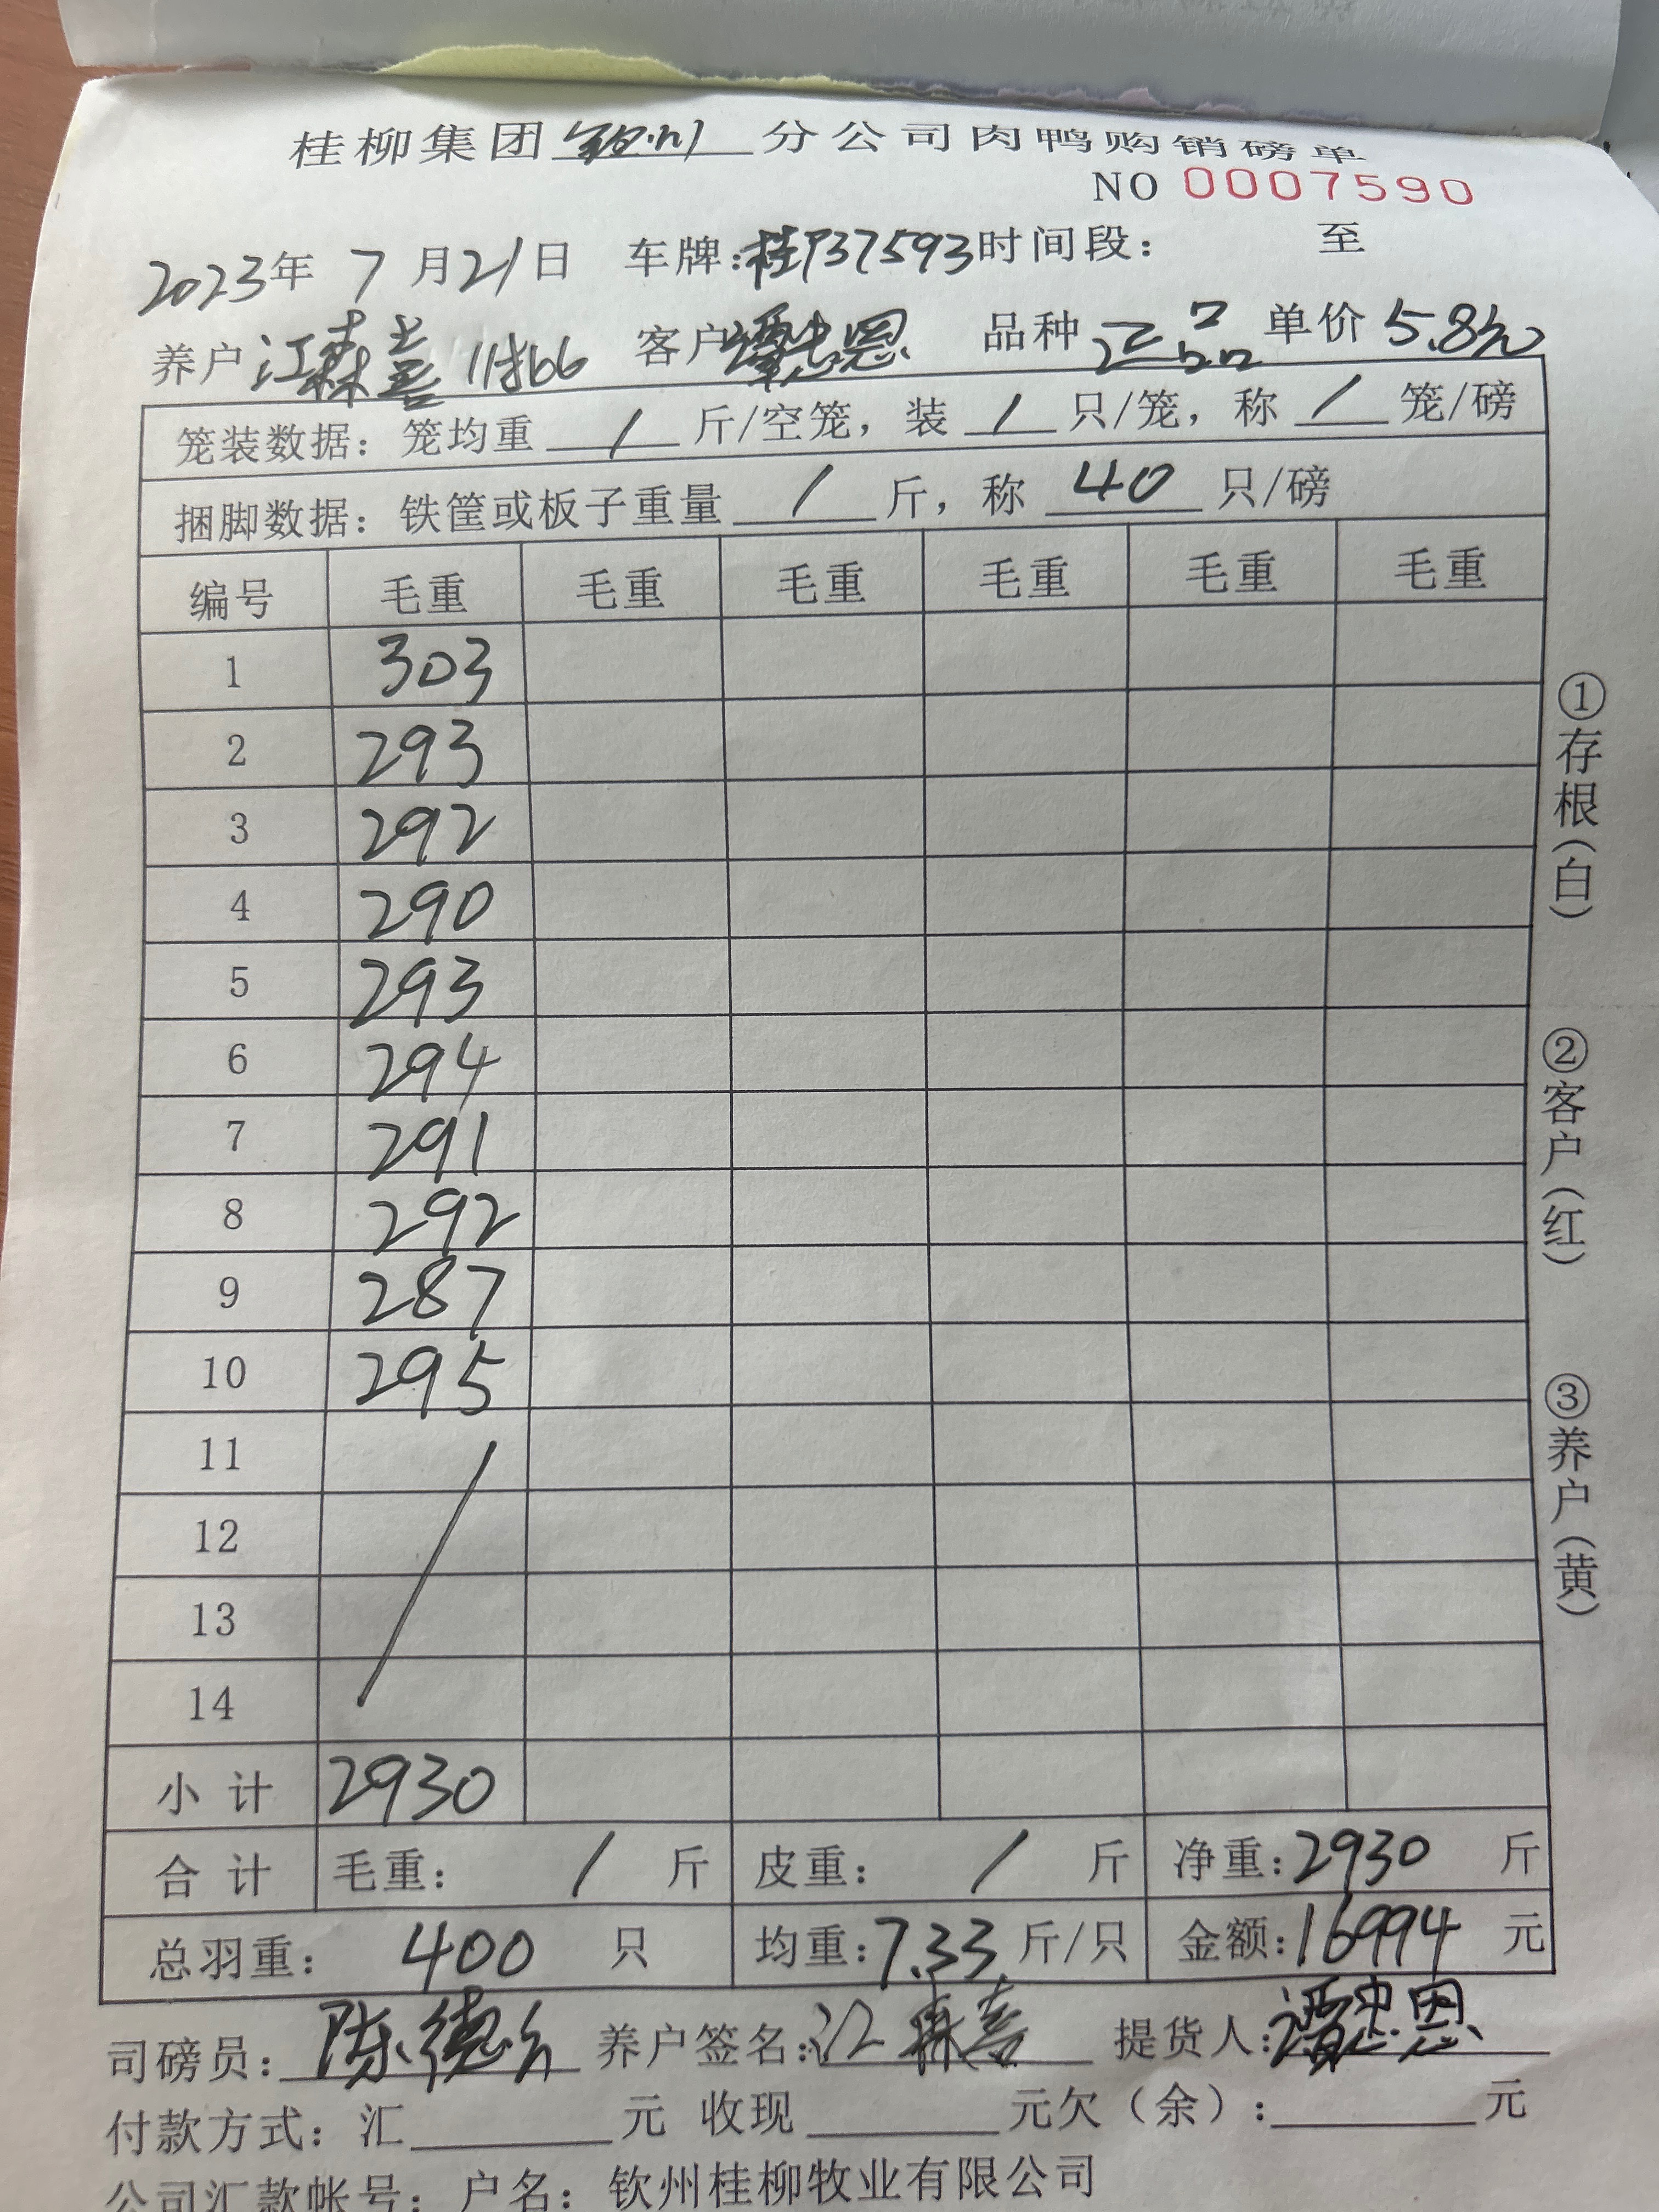 桂柳集团钦州分公司肉鸭购销磅单
NO 0007590
2023年 7月21日 车牌:桂P37593时间段: 至
养户 江森善 客户谭忠恩 品种 正品 单价 5.8元
笼装数据：笼均重 / 斤/空笼，装 / 只/笼，称 / 笼/磅
捆脚数据：铁筐或板子重量 / 斤，称 40 只/磅
编号 毛重 毛重 毛重 毛重 毛重 毛重
1 303
2 293
3 292
4 290
5 293
6 294
7 291
8 292
9 287
10 295
11
12
13
14
小计 2930
合计 毛重: / 斤 皮重: / 斤 净重:2930 斤
总羽重: 400 只 均重:7.33斤/只 金额:16994元
司磅员:陈德 养户签名:江森善 提货人:谭忠恩
付款方式：汇 元 收现 元欠（余）: 元
公司汇款帐号：户名：钦州桂柳牧业有限公司
①存根(白)
②客户(红)
③养户(黄)